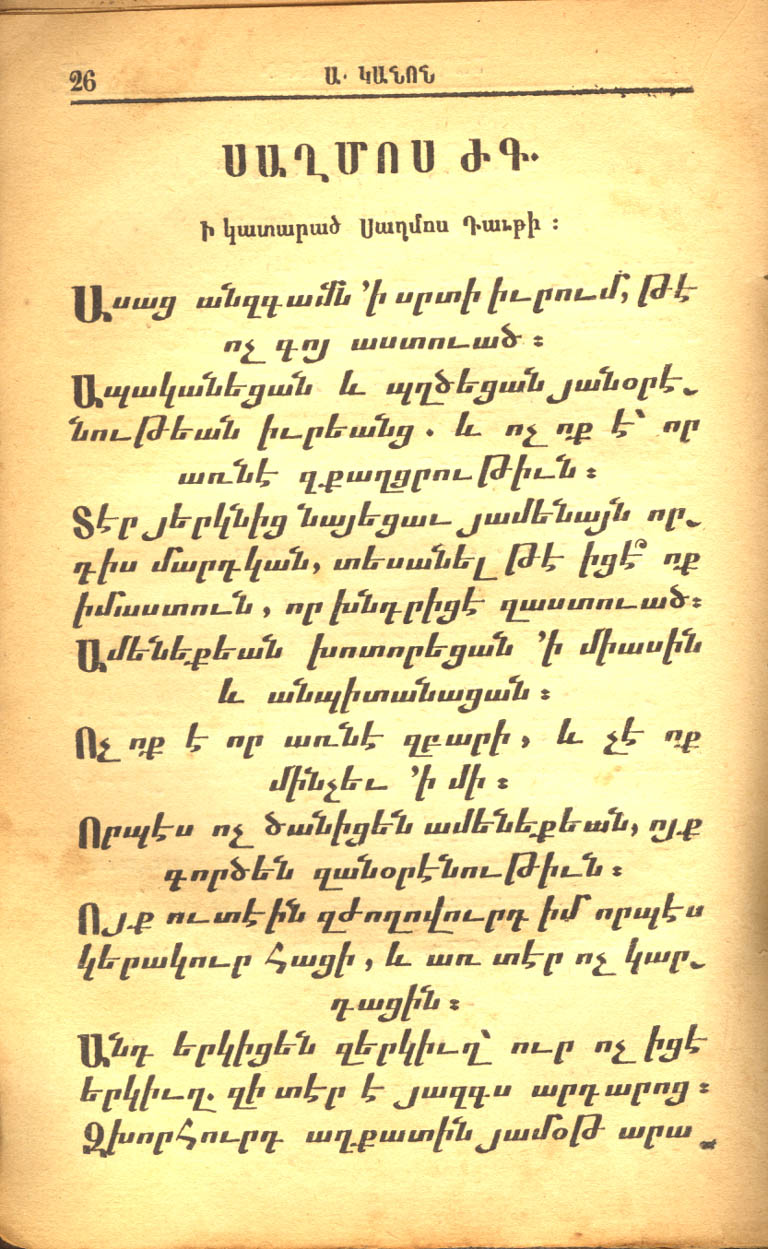 26 Ա. ԿԱՆՈՆ
ՍԱՂՄՈՍ ԺԳ.
Ի կատարած Սաղմոս Դաւթի ։
Ասաց անզգամն ՚ի սրտի իւրում, թէ
ոչ գոյ աստուած ։
Ապականեցան և պղծեցան յանօրէ֊
նութեան իւրեանց . և ոչ ոք է՝ որ
առնէ զքաղցրութիւն ։
Տէր յերկնից նայեցաւ յամենայն որ֊
դիս մարդկան, տեսանել թէ իցէ՞ ոք
իմաստուն , որ խնդրիցէ զաստուած ։
Ամենեքեան խոտորեցան ՚ի միասին
և անպիտանացան ։
Ոչ ոք է որ առնէ զբարի , և չէ ոք
մինչեւ ՚ի մի ։
Որպէս ոչ ծանիցեն ամենեքեան, ոյք
գործեն զանօրէնութիւն ։
Ոյք ուտէին զժողովուրդ իմ որպէս
կերակուր հացի , և առ տէր ոչ կար֊
դացին ։
Անդ երկիցեն զերկիւղ՝ ուր ոչ իցէ
երկիւղ. զի տէր է յազգս արդարոց ։
Զխորհուրդ աղքատին յամօթ արա֊